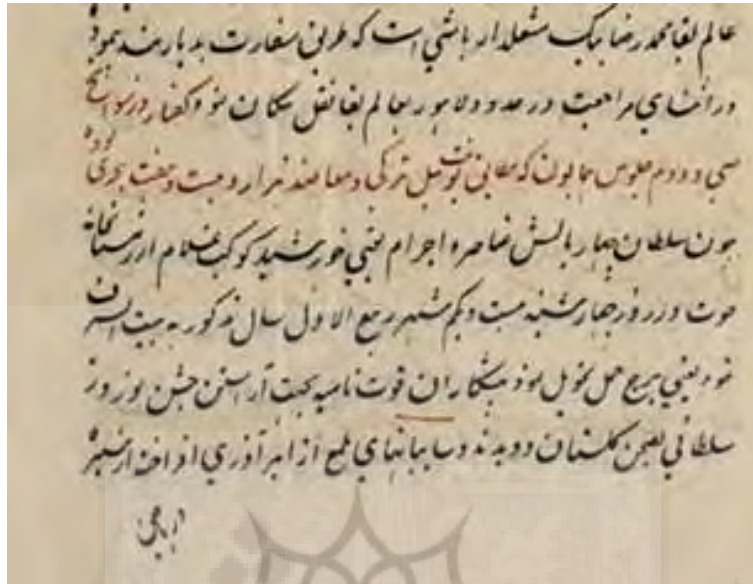 عالم بقا محمد رضا بیک مشعلدار باشی است که طریق سفارت بدیار هند نموده
در اثنای مراجعت در حدود لاهور بعالم بقا نقل مکان نمود گفتار در سوانح
سی و دوم جلوس همایون که مطابق ئیل ترکی و معا صد هزار و بیست و هفت هجری بوده
چون سلطان چهار بالش عناصر و اجرام یعنی خورشید کوکب غلام از زمستانخانه
حوت در روز چهارشنبه بیست و یکم شهر ربیع الاول سال مذکور به بیت الشرف
خود یعنی برج حمل تحویل نمود پیشکاران قوت نامیه بجهت آراستن جشن نوروز
سلطانی بصحن گلستان دویدند و سایبانهای ملمع از ابر آذری افراختند